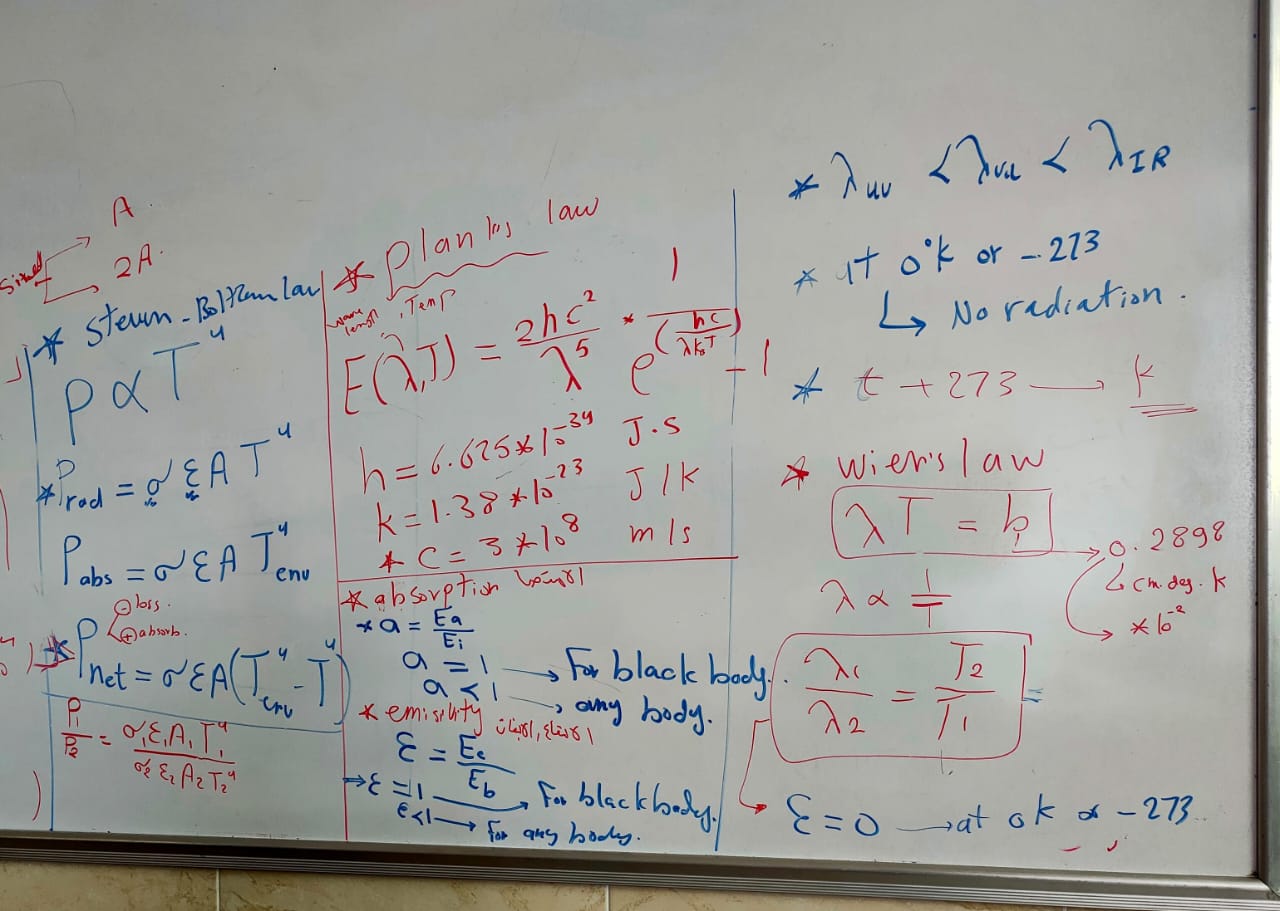 A
2A.
* Stevin - Boltzman law
P ∝ T⁴
*Prad = σ ε A T⁴
Pabs = σ ε A T⁴env
⊖ loss.
⊕ absorb.
* Pnet = σ ε A (T⁴env - T⁴)
P₁/P₂ = σ₁ε₁A₁T₁⁴ / σ₂ε₂A₂T₂⁴
* Planks law
wave length, Temp
E(λ,T) = 2hc²/λ⁵ * 1/(e^(hc/λkBT) - 1)
h = 6.625*10⁻³⁴ J.s
k = 1.38*10⁻²³ J/k
* C = 3*10⁸ m/s
* absorption الامتصاص
* a = Ea/Ei
a = 1 → For black body.
a < 1 → any body.
* emisibity
ε = Ee/Eb
⇒ ε = 1 → For black body.
ε<1 → For any body.
* λuv < λvis < λIR
* at 0°k or -273
↳ No radiation.
* t + 273 → k
* Wier's law
λT = b → 0.2898
↳ cm.deg.k
→ *10⁻²
λ ∝ 1/T
λ₁/λ₂ = T₂/T₁ =
ε = 0 → at 0k or -273